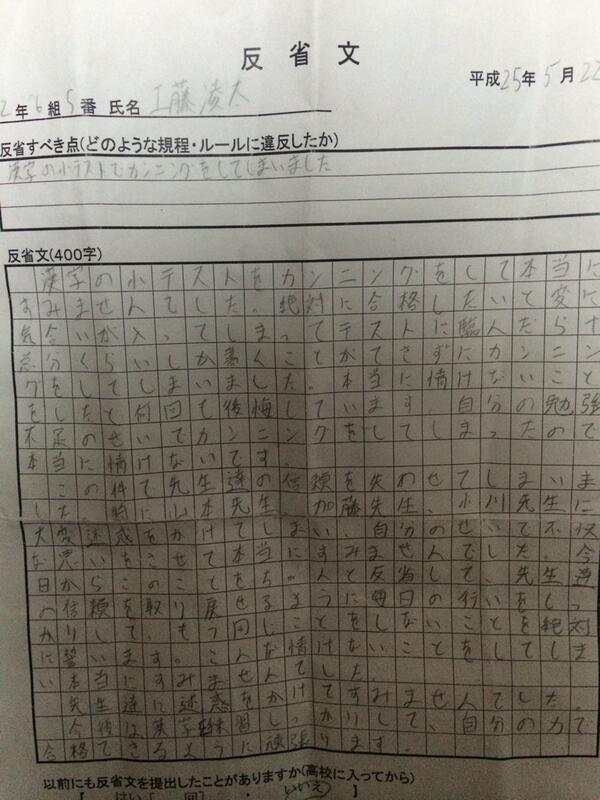 反省文
平成25年5月22
2年6組5番 氏名 工藤凌太
反省すべき点(どのような規程・ルールに違反したか)
漢字の小テストでカンニングをしてしまいました
反省文(400字)
漢字の小テストをカンニングをして本当に
すみませんでした。絶対に合格したいと変に
気合いが入ってしまってテストに臨んだら十
分くらいしか書くことができずにカンニン
グをしてしまいました。本当に情けないこと
をしたと何回も後悔しています。自分の勉強
不足のせいでカンニングをしてしまったので
本当に情けないです。
この件で先生達の信頼を失わせてしまいま
した。特に山本先生、加藤先生、小川先生に
大変迷惑をかけてしまい、自分のせいで不快
な思いをさせて本当にすみませんでした。今
日からこのことをちゃんと反省して、先生達
の信頼を取り戻せるように毎日の行いをしっ
かりして、もう同じことをしないことを絶対
に誓います。こんな情けないことをしてしま
い本当にすみませんでした。
先生達に迷惑をかけてすみませんでした。
今後は漢字練習しっかりして、自分の力で
合格できるように頑張ります。
以前にも反省文を提出したことがありますか(高校に入ってから)
【 はい [ 回] ・ いいえ 】